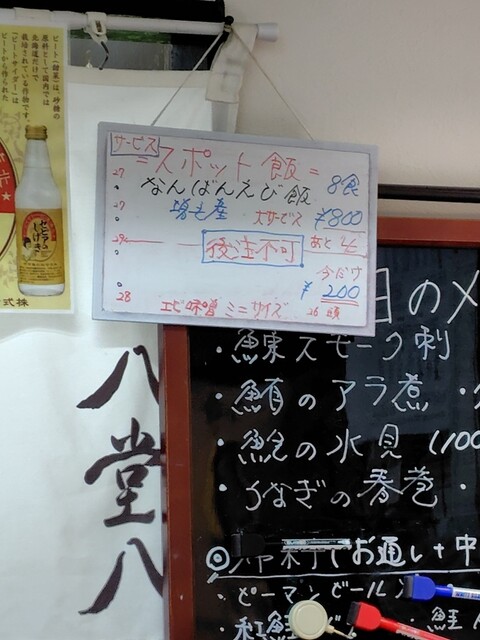 ビート(甜菜)は、砂糖の
原料として国内では
北海道だけで
栽培されている作物です。
「ビートサイダー」は
ビートから作られた
式株
サービス
=スポット飯=
27 なんばんえび飯 8食
27 増毛産 大サービス ¥800
後注不可 あと
今だけ
¥200
28 エビ味噌 ミニサイズ 26
八
堂
八
日のメ
・鰊スモーク刺
・鮪のアラ煮・
・鯰の氷見 (100
・うなぎの春巻・
お通し中
・ピーマンビール
紅鮭 ・鮭